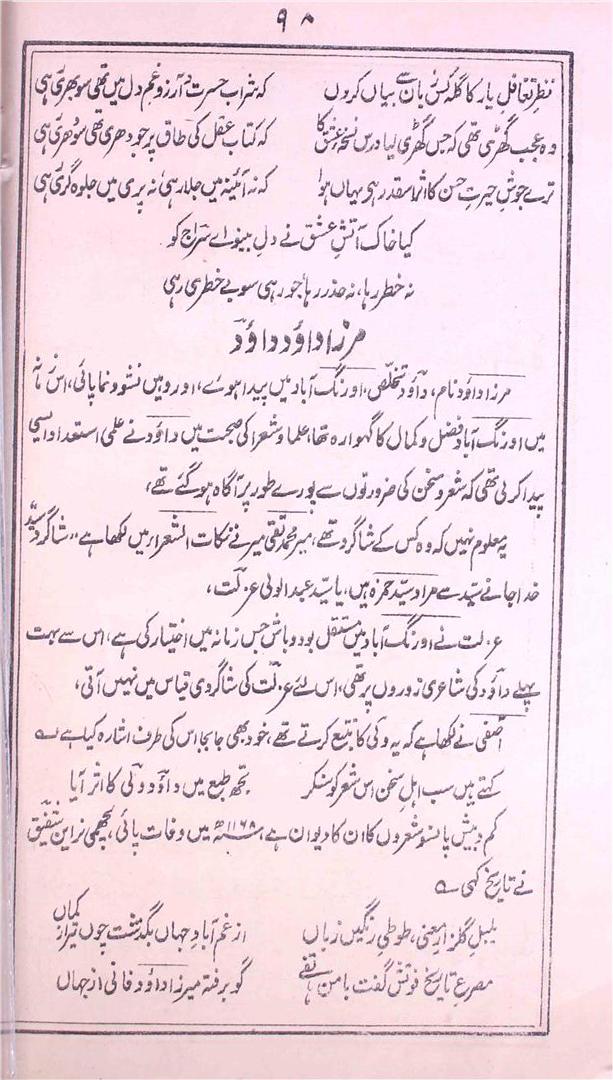 ۹۸
نظرِ تغافلِ یار کا گلہ کس زباں سے بیاں کروں کہ شراب حسرت و آرزو غم دل میں تھی سو بھری رہی
وہ عجب گھڑی تھی کہ جس گھڑی لیا درس نسخۂ عشق کا کہ کتاب عقل کی طاق پر جو دھری تھی سو دھری رہی
ترے جوشِ حیرتِ حسن کا اثر اسقدر ہی یہاں ہوا کہ نہ آئینہ میں جلا رہی نہ پری میں جلوہ گری رہی
کیا خاک آتشِ عشق نے دلِ بینواے سراج کو
نہ خطر رہا، نہ حذر رہا، جو رہی سو بے خطری رہی
مرزا داؤد داؤد
مرزا داؤد نام، داؤد تخلص، اورنگ آباد میں پیدا ہوے، اور وہیں نشو و نما پائی، اس زمانہ
میں اورنگ آباد فضل و کمال کا گہوارہ تھا، علما و شعرا کی صحبت میں داؤد نے علمی استعداد ایسی
پیدا کر لی تھی کہ شعر و سخن کی ضرورتوں سے پورے طور پر آگاہ ہو گئے تھے،
یہ معلوم نہیں کہ وہ کس کے شاگرد تھے، میر محمد تقی میر نے نکات الشعراء میں لکھا ہے "شاگرد سید"
خدا جانے سید سے مراد سید حمزہ ہیں، یا سید عبد الولی عزلت،
عزلت نے اورنگ آباد میں مستقل بود و باش جس زمانہ میں اختیار کی ہے، اس سے بہت
پہلے داؤد کی شاعری زوروں پر تھی، اس لئے عزلت کی شاگردی قیاس میں نہیں آتی،
آصفی نے لکھا ہے کہ یہ ولی کا تتبع کرتے تھے، خود بھی جابجا اس کی طرف اشارہ کیا ہے ؎
کہتے ہیں سب اہلِ سخن اس شعر کو سنکر تجھ طبع میں داؤد ولی کا اثر آیا
کم و بیش پانسو شعروں کا ان کا دیوان ہے، ۱۱۶۸ھ میں وفات پائی، لچھمی نراین شفیق
نے تاریخ کہی ؎
بلبلِ گلزارِ معنی، طوطیِ رنگیں زباں از غم آبادِ جہاں بگذشت چوں تیر از کماں
مصرعِ تاریخ فوتش گفت بامن ہاتفے گو برفتہ میرزا داؤد فانی از جہاں